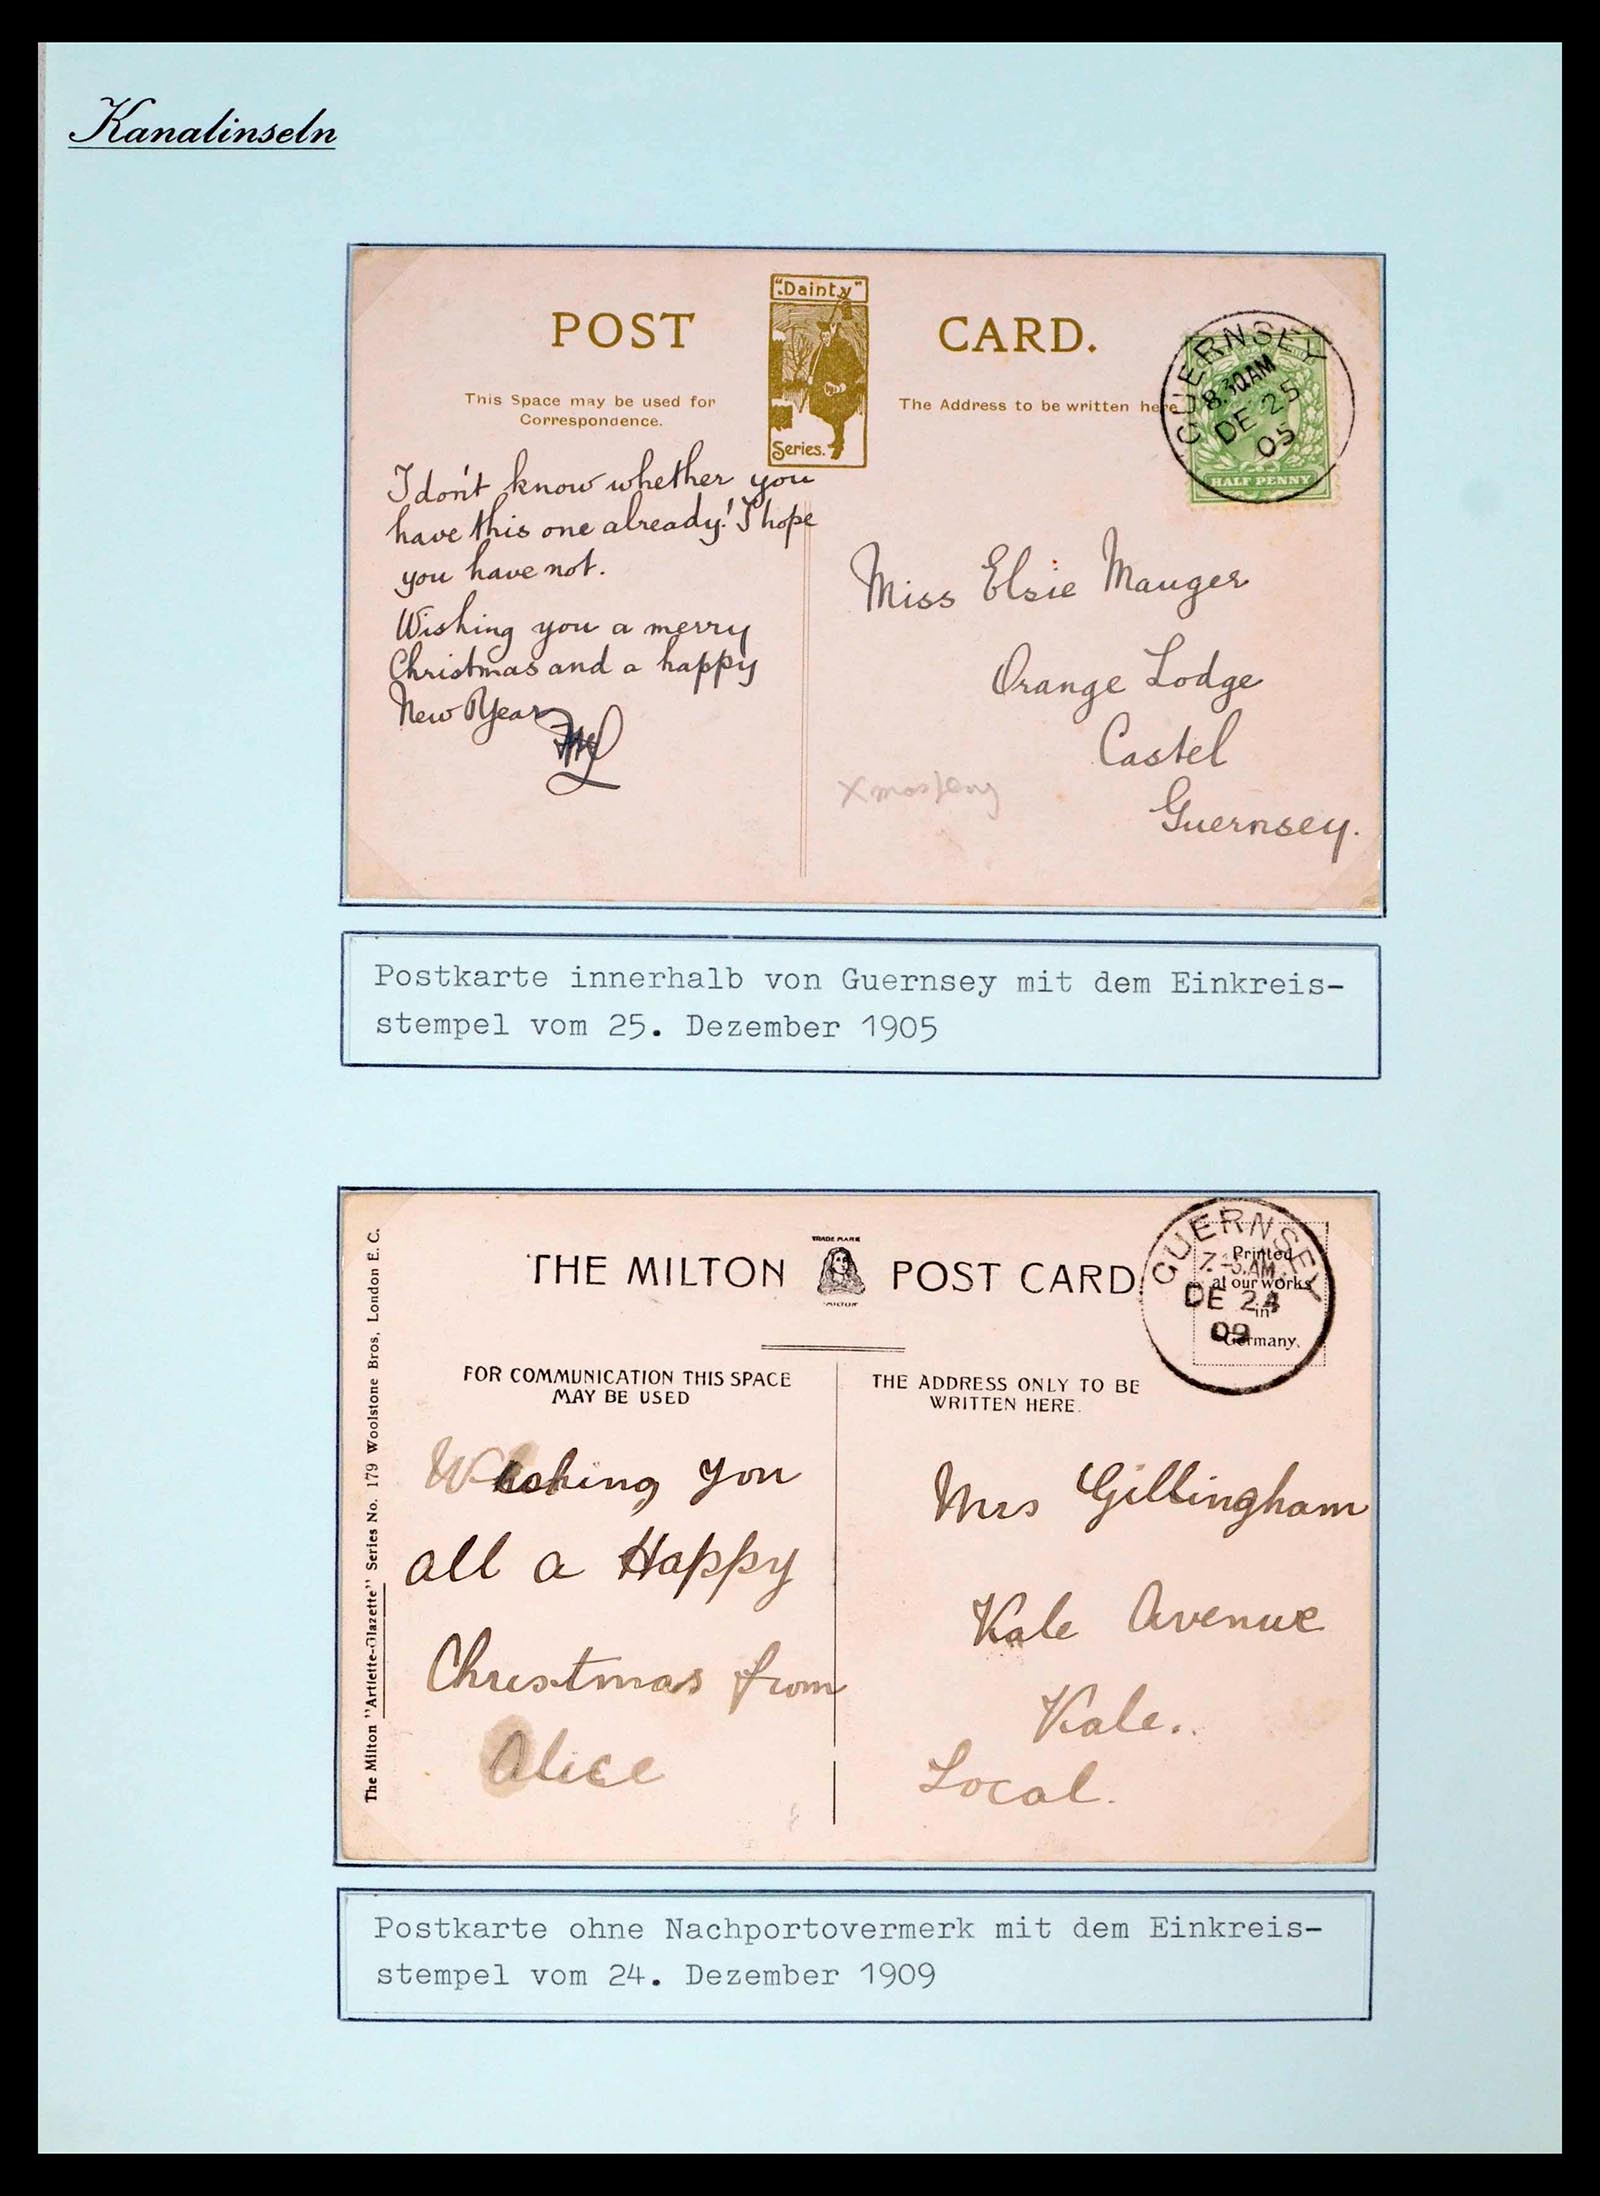 Kanalinseln
"Dainty"
Series.
POST CARD.
This Space may be used for
Correspondence.
The Address to be written here
GUERNSEY
8.30AM
DE 25
05
HALF PENNY
I don't know whether you
have this one already! I hope
you have not.
Wishing you a merry
Christmas and a happy
New Year
Miss Elsie Mauger
Orange Lodge
Castel
Guernsey.
Postkarte innerhalb von Guernsey mit dem Einkreis-
stempel vom 25. Dezember 1905
The Milton "Artlette-Glazette" Series No. 179 Woolstone Bros, London E.C.
THE MILTON POST CARD
TRADE MARK
MILTON
GUERNSEY
DE 24
09
Printed
at our works
in
Germany.
FOR COMMUNICATION THIS SPACE
MAY BE USED
THE ADDRESS ONLY TO BE
WRITTEN HERE.
Wishing you
all a Happy
Christmas from
Alice
Mrs Gillingham
Vale Avenue
Vale.
Local.
Postkarte ohne Nachportovermerk mit dem Einkreis-
stempel vom 24. Dezember 1909